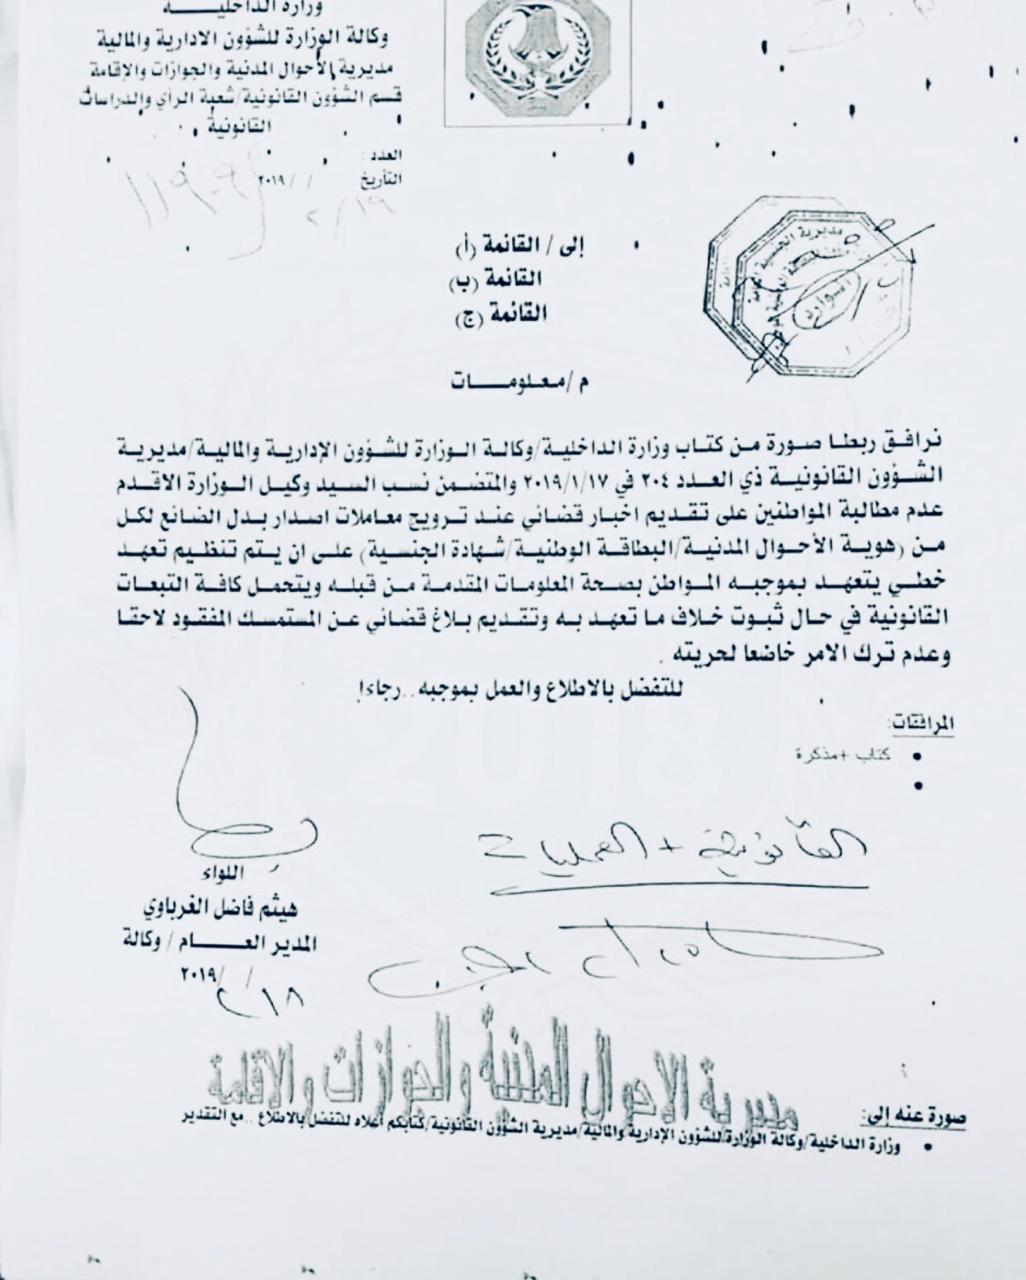 وزارة الداخليـــــــة
وكالة الوزارة للشؤون الادارية والمالية
مديرية الأحوال المدنية والجوازات والإقامة
قسم الشؤون القانونية/شعبة الرأي والدراسات
القانونية
العدد :
التأريخ / / ٢٠١٩
٢/١٩
إلى / القائمة (أ)
القائمة (ب)
القائمة (ج)
م /معـلـومـــــات
نرافـق ربطـا صورة مـن كتـاب وزارة الداخليـة/وكالـة الـوزارة للشـؤون الإداريـة والماليـة/مديريـة
الشـؤون القانونيـة ذي العـدد ٢٠٤ في ٢٠١٩/١/١٧ والمتضمـن نسـب السـيد وكيـل الـوزارة الاقـدم
عـدم مطالبـة المواطنين على تقـديم اخبـار قضـائي عنـد تـرويج معاملات اصـدار بـدل الضـائع لكـل
مـن (هويـة الأحـوال المدنيـة/البطاقـة الوطنيـة/شهادة الجنسـية) علـى ان يـتم تنظـيم تعهـد
خطـي يتعهـد بموجبـه المـواطن بصـحة المعلومـات المقدمـة مـن قبلـه ويتحمـل كافـة التبعـات
القانونيـة في حـال ثبـوت خـلاف مـا تعهـد بـه وتقـديم بـلاغ قضـائي عـن المستمسـك المفقـود لاحقـا
وعدم ترك الامر خاضعا لحريته .
للتفضل بالاطلاع والعمل بموجبه..رجاءا
المرافقات:
كتاب +مذكرة
القانونية + العمليات
اللواء
هيثم فاضل الغرباوي
المدير العـــــام / وكالة
/ / ٢٠١٩
٢/١٨
مديرية الاحوال المدنية والجوازات والاقامة
صورة عنه إلى:
• وزارة الداخلية/وكالة الوزارة للشؤون الإدارية والمالية/مديرية الشؤون القانونية/كتابكم أعلاه للتفضل بالاطلاع ..مع التقدير